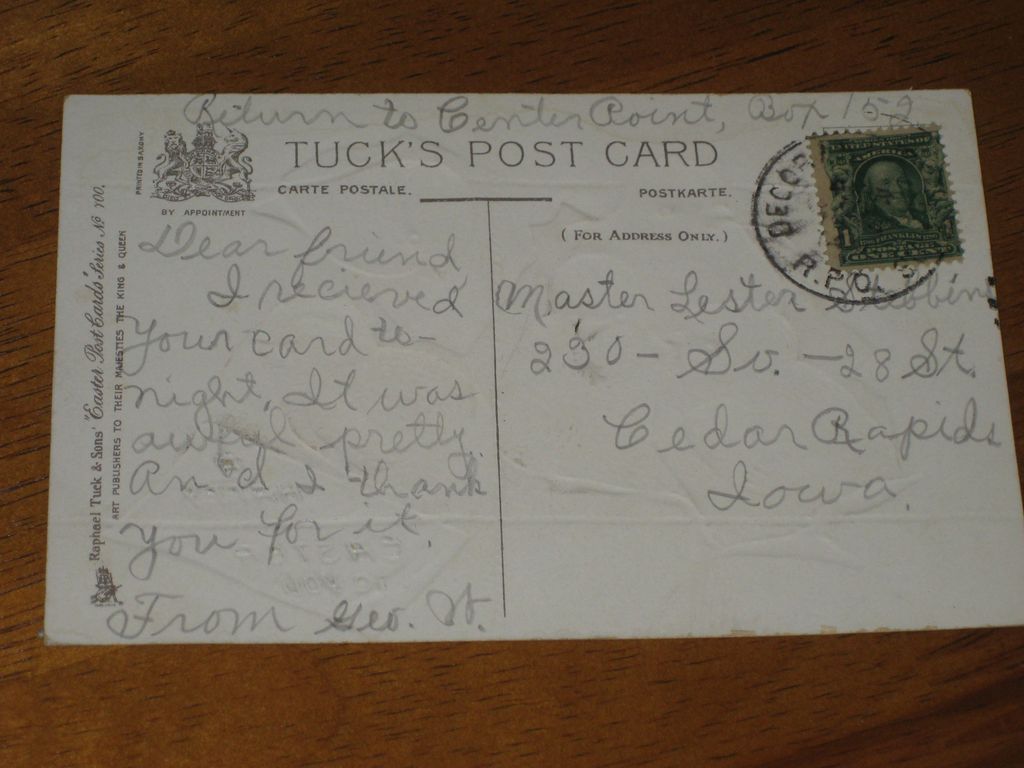 Return to Center Point, Box 152
TUCK'S POST CARD
CARTE POSTALE.
POSTKARTE.
PRINTED IN SAXONY
BY APPOINTMENT
(FOR ADDRESS ONLY.)
Raphael Tuck & Sons' "Easter Post Cards" Series No 700.
ART PUBLISHERS TO THEIR MAJESTIES THE KING & QUEEN
Dear friend
I recieved
your card to-
night. It was
awful pretty.
And I thank
you for it.
From Geo. W.
Master Lester
230 - So. - 28 St.
Cedar Rapids
Iowa
DECOR
R.P.O.
UNITED STATES OF
AMERICA
1
FRANKLIN
POSTAGE
ONE CENT